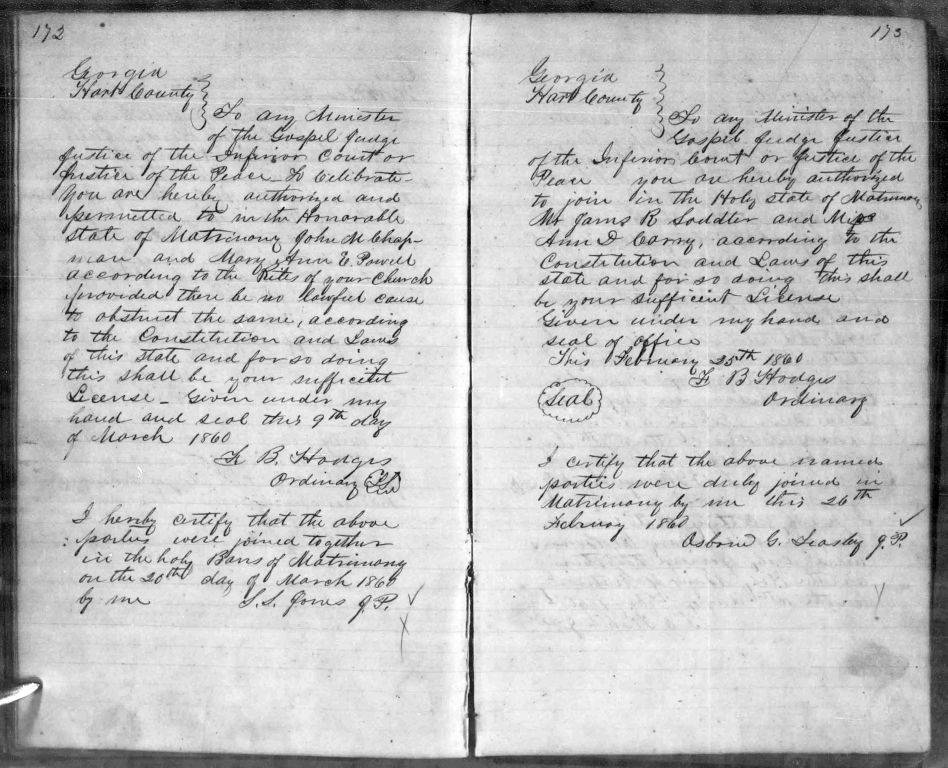 172
Georgia
Hart County
To any Minister
of the Gospel Judge
Justice of the Inferior Court or
Justice of the Peace To Celebrate
You are hereby authorized and
permitted to in the Honorable
state of Matrimony John M. Chap-
man and Mary Ann E. Powell
according to the Rites of your Church
provided there be no lawful cause
to obstruct the same, according
to the Constitution and Laws
of this state and for so doing
this shall be your sufficient
License - Given under my
hand and seal this 9th day
of March 1860
F. B. Hodges
Ordinary
I hereby certify that the above
parties were joined together
in the holy Bans of Matrimony
on the 20th day of March 1860
by me S. S. Jones J. P.
173
Georgia
Hart County
To any Minister of the
Gospel Judge Justice
of the Inferior Court or Justice of the
Peace you are hereby authorized
to join in the Holy state of Matrimony
Mr Jams R Saddler and Miss
Ann D Carry, according to the
Constitution and Laws of this
state and for so doing this shall
be your sufficent License
Given under my hand and
seal of office
This February 25th 1860
F. B Hodges
Ordinary
Seal
I certify that the above named
parties were duly joined in
Matrimony by me this 26th
February 1860
Osborn G. Teasley J. P.